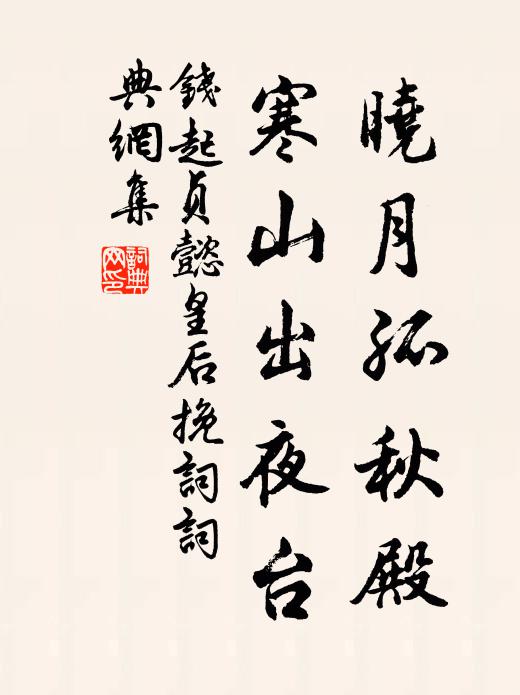 曉月孤秋殿
寒山出夜台
錢起貞懿皇后挽詞詞
典網集
詞典
网印